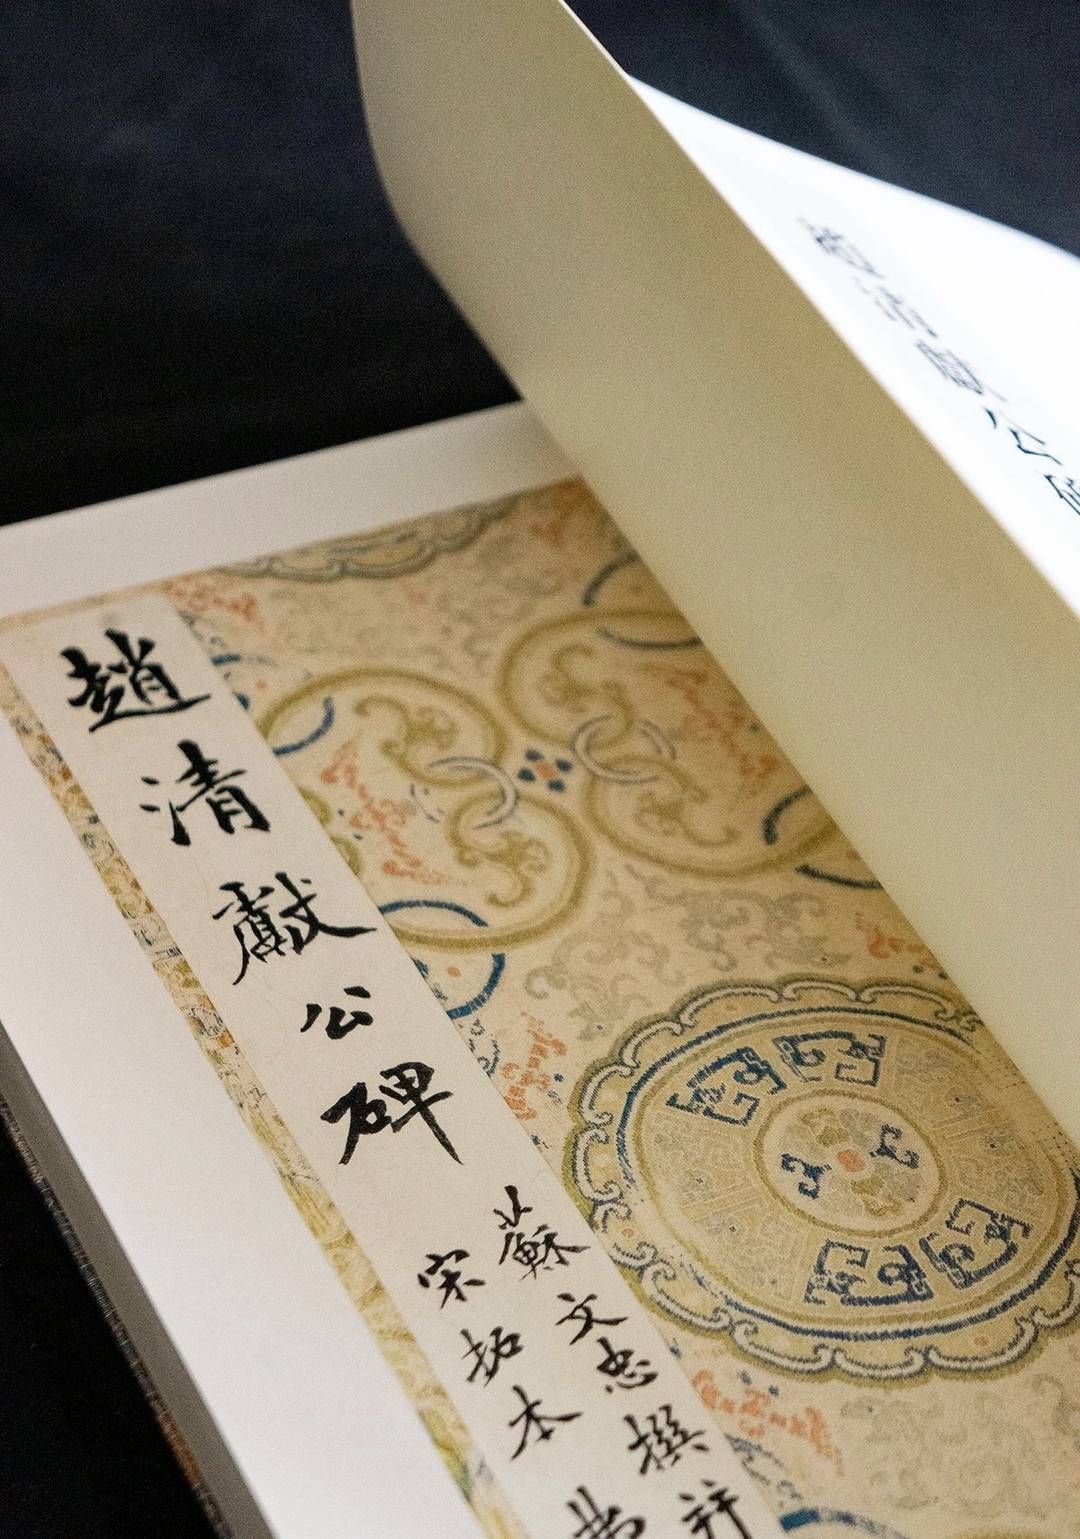 趙清獻公
趙清獻公碑
蘇文忠撰并
宋拓本